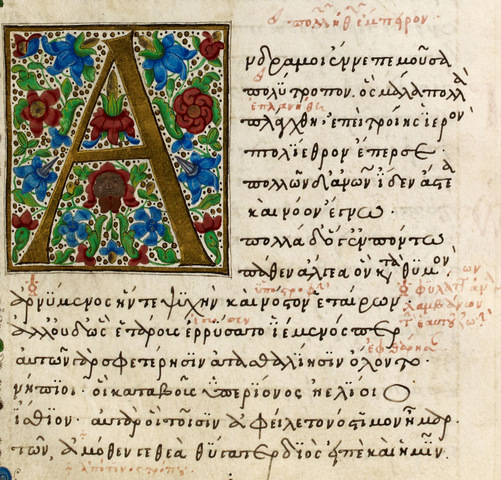 Ανδρα μοι ἔννεπε μοῦσα
πολύτροπον. ὃς μάλα πολλὰ
ἐπλανήθη
πλάγχθη· ἐπεὶ τροίης ἱερὸν
πτολίεθρον ἔπερσε·
πολλῶν δ' ἀνων ἴδεν ἄστεα
καὶ νόον ἔγνω·
πολλὰ δ' ὅγ' ἐν πόντω
πάθεν ἄλγεα ὃν κτὰ θυμὸν·
ἀρνύμενος ἥν τε ψυχὴν καὶ νόστον ἑταίρων·
ἀλλ' οὐδ' ὣς ἑτάρους ἐρρύσατο ἱέμενός περ
αὐτῶν γὰρ σφετέρησιν ἀτασθαλίησιν ὄλοντο·
νήπϊοι· οἳ κατὰ βοῦς ὑπερίονος ἠελίοιο
ἤσθιον· αὐτὰρ ὁ τοῖσιν ἀφείλετο νόστιμον ἦμαρ·
τῶν ἁμόθεν γε θεὰ θύγατερ διὸς εἰπὲ καὶ ἡμῖν.